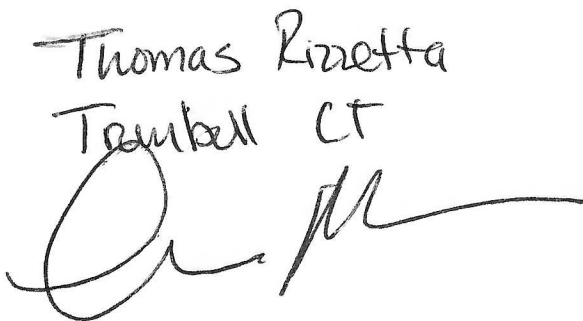 Thomas Rizzetta
Trumbull CT